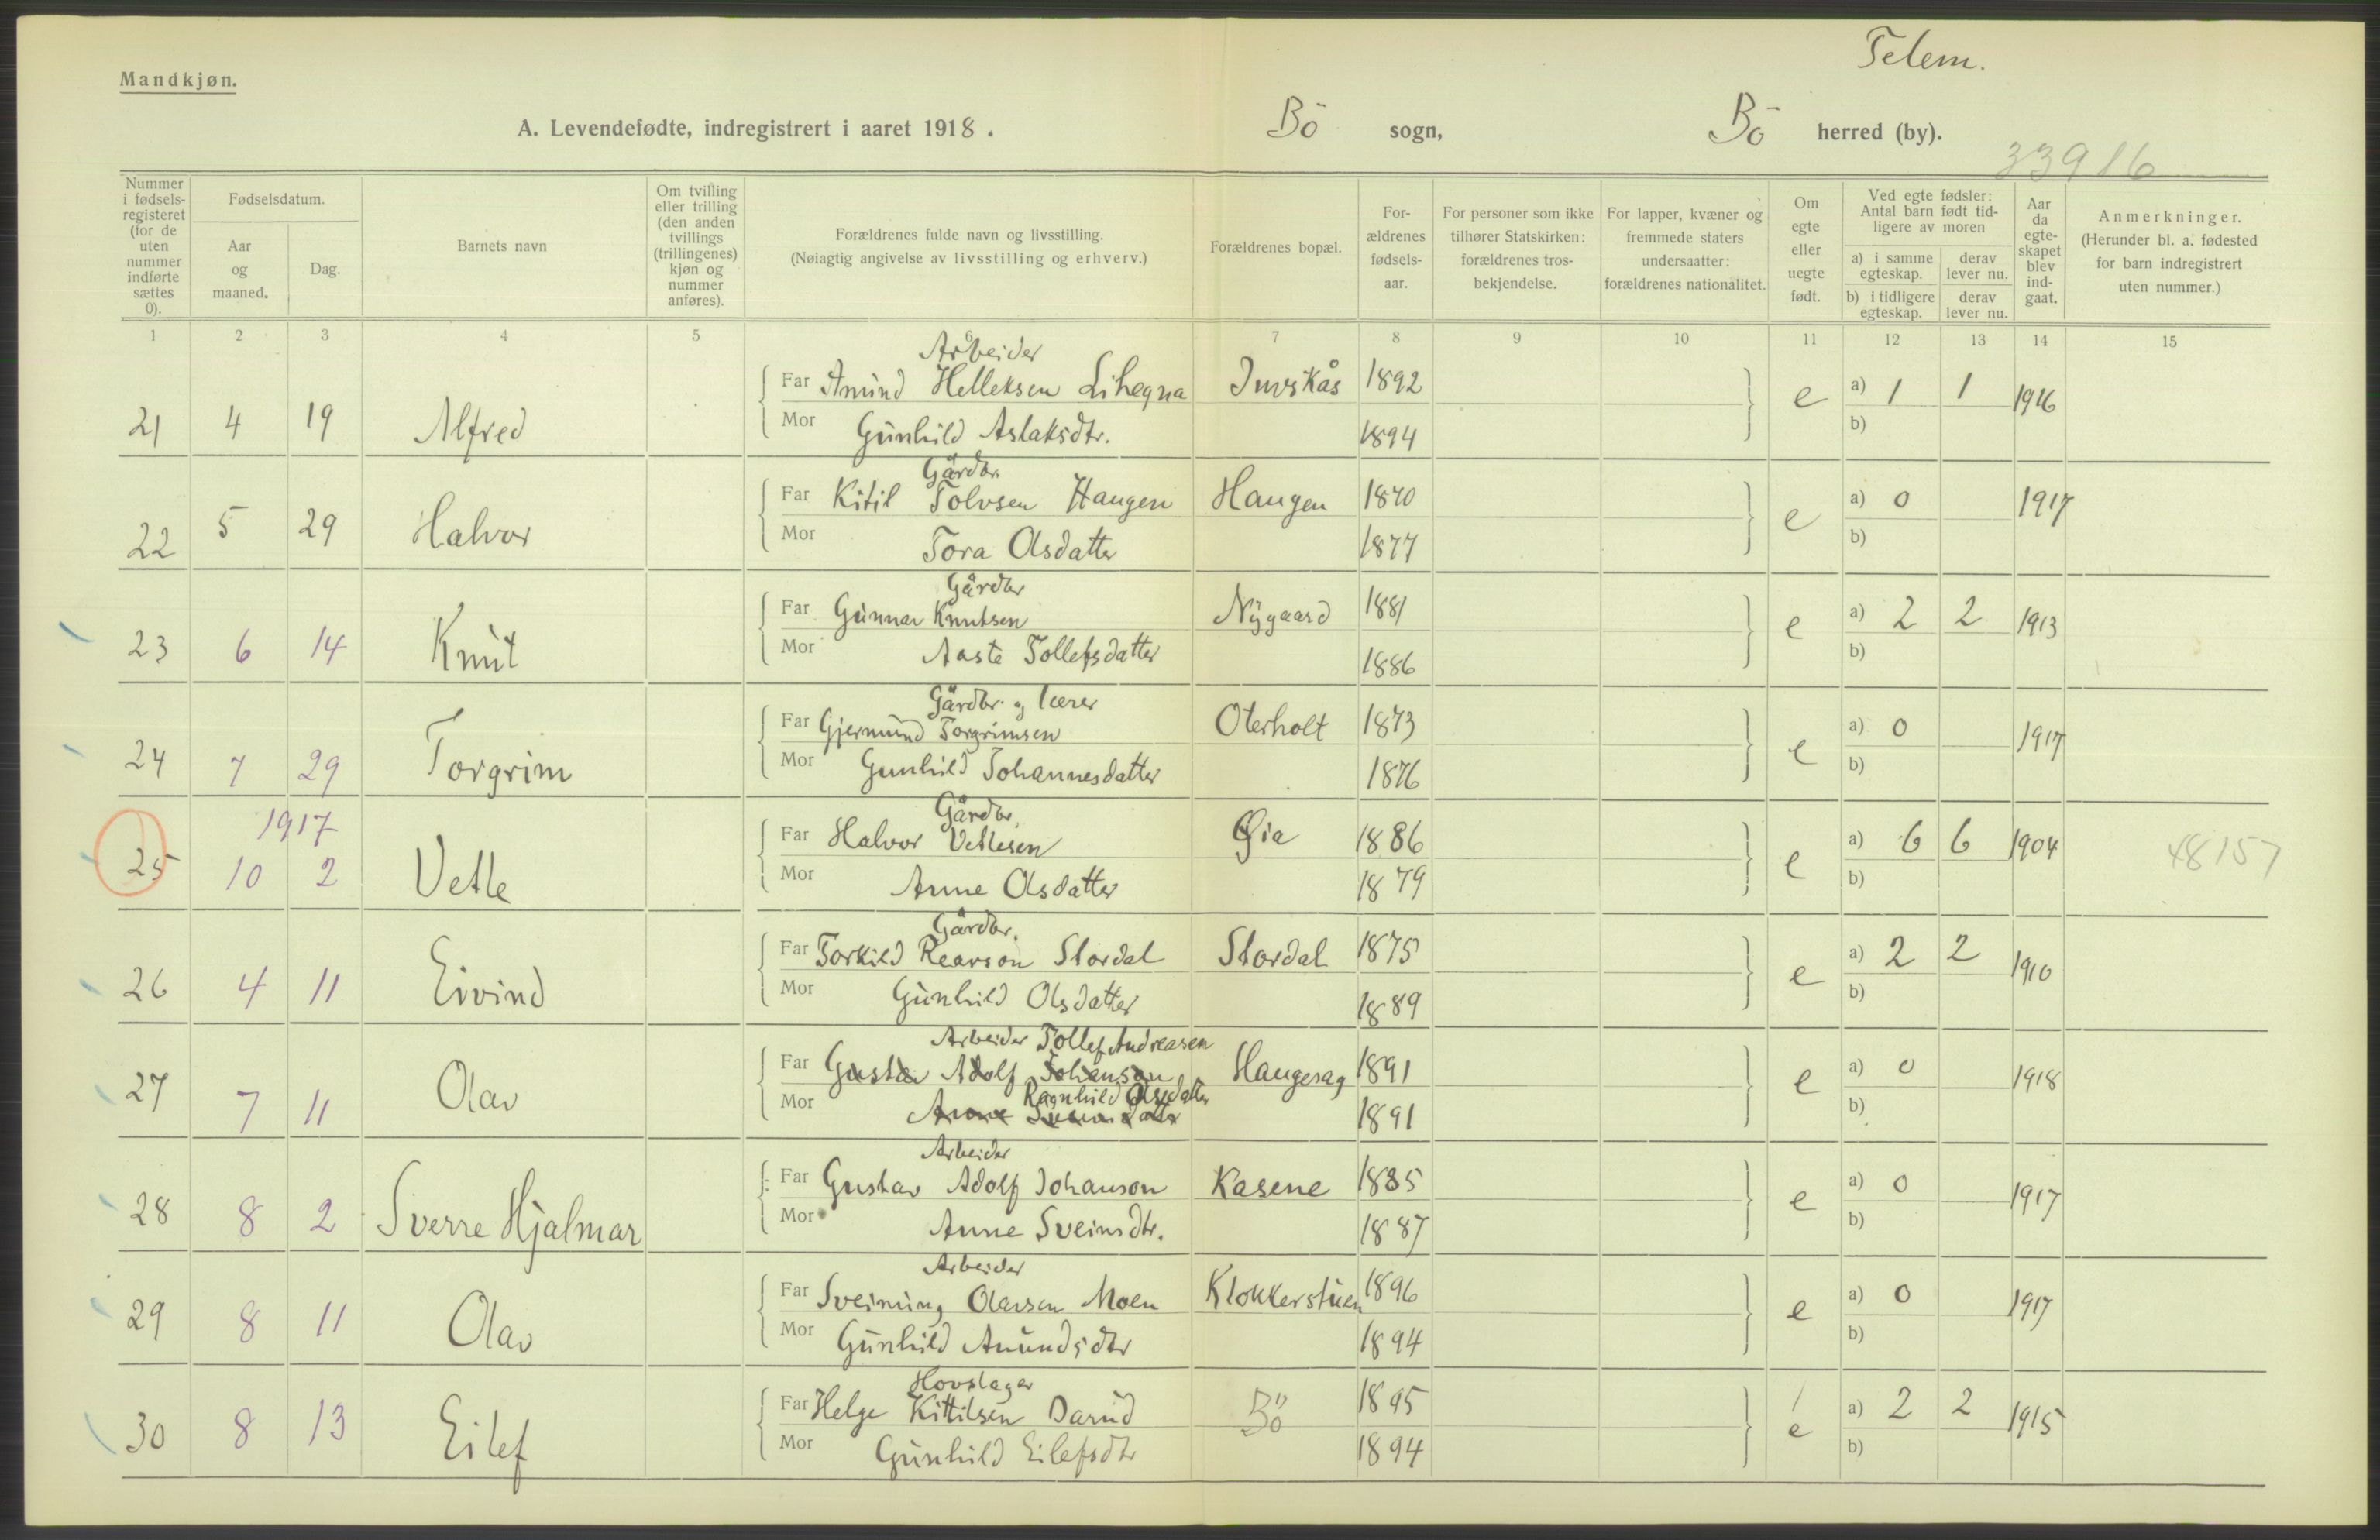 Telem.
Mandkjøn.
A. Levendefødte, indregistrert i aaret 1918. Bö sogn, Bö herred (by).
33916
Nummer i fødsels-registeret (for de uten nummer indførte sættes 0). Fødselsdatum. Aar og maaned. Dag. Barnets navn Om tvilling eller trilling (den anden tvillings (trillingenes) kjøn og nummer anføres). Forældrenes fulde navn og livsstilling. (Nøiagtig angivelse av livsstilling og erhverv.) Forældrenes bopæl. For-ældrenes fødsels-aar. For personer som ikke tilhører Statskirken: forældrenes tros-bekjendelse. For lapper, kvæner og fremmede staters undersaatter: forældrenes nationalitet. Om egte eller uegte født. Ved egte fødsler: Antal barn født tid-ligere av moren a) i samme egteskap. derav lever nu. b) i tidligere egteskap. derav lever nu. Aar da egte-skapet blev ind-gaat. Anmerkninger. (Herunder bl. a. fødested for barn indregistrert uten nummer.)
1 2 3 4 5 6 7 8 9 10 11 12 13 14 15
Arbeider
21 4 19 Alfred Far Amund Helleksen Lihegna Juvskås 1892 e a) 1 1 1916
Mor Gunhild Aslaksdtr. 1894 b)
Gårdbr.
22 5 29 Halvor Far Kitil Tolvsen Haugen Haugen 1870 e a) 0 1917
Mor Tora Olsdatter 1877 b)
Gårdbr
23 6 14 Knut Far Gunnar Knutsen Nygaard 1881 e a) 2 2 1913
Mor Aaste Tollefsdatter 1886 b)
Gårdbr. og lærer
24 7 29 Torgrim Far Gjermund Torgrimsen Oterholt 1873 e a) 0 1917
Mor Gunhild Johannesdatter 1876 b)
1917 Gårdbr.
25 10 2 Vetle Far Halvor Vetlesen Øia 1886 e a) 6 6 1904 48157
Mor Anne Olsdatter 1879 b)
Gårdbr.
26 4 11 Eivind Far Torkild Rearson Stordal Stordal 1875 e a) 2 2 1910
Mor Gunhild Olsdatter 1889 b)
Arbeider Tollef Andreasen
27 7 11 Olav Far Gustav Adolf Johanson Haugesag 1891 e a) 0 1918
Ragnhild Olsdatter
Mor Anne Sveinsdatter 1891 b)
Arbeider
28 8 2 Sverre Hjalmar Far Gustav Adolf Johanson Kasene 1885 e a) 0 1917
Mor Anne Sveinsdtr. 1887 b)
Arbeider
29 8 11 Olav Far Sveinung Olavsen Moen Klokkerstuen 1896 e a) 0 1917
Mor Gunhild Amundsdtr 1894 b)
Hovslager
30 8 13 Eilef Far Helge Kittilsen Darud Bö 1895 e a) 2 2 1915
Mor Gunhild Eilefsdtr 1894 b)